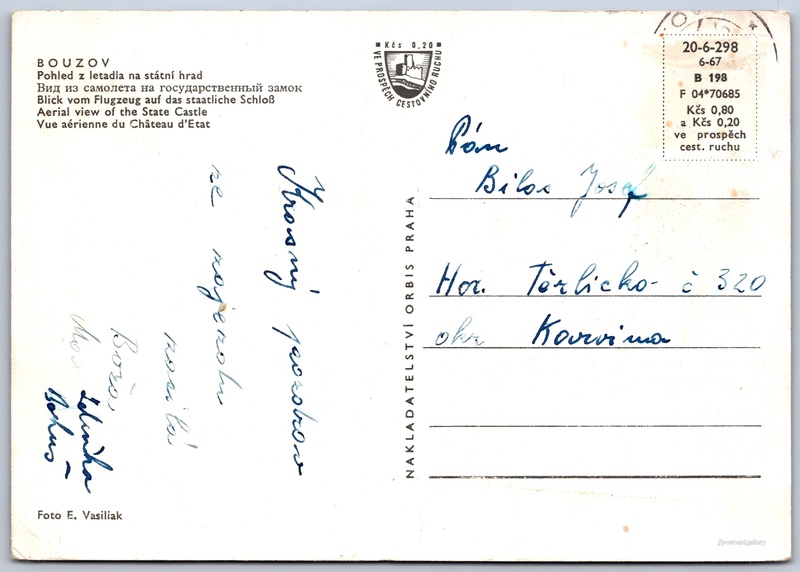 BOUZOV
Pohled z letadla na státní hrad
Вид из самолета на государственный замок
Blick vom Flugzeug auf das staatliche Schloß
Aerial view of the State Castle
Vue aérienne du Château d'Etat
Kčs 0,20
VE PROSPĚCH CESTOVNÍHO RUCHU
20-6-298
6-67
B 198
F 04*70685
Kčs 0,80
a Kčs 0,20
ve prospěch
cest. ruchu
Krásný pozdrav
ze zájezdu
posílá
Boža,
Zdeňka
Bohuš
NAKLADATELSTVÍ ORBIS PRAHA
Pán
Bilos Josef
Hor. Těrlicko- č 320
okr Karvina
Foto E. Vasiliak